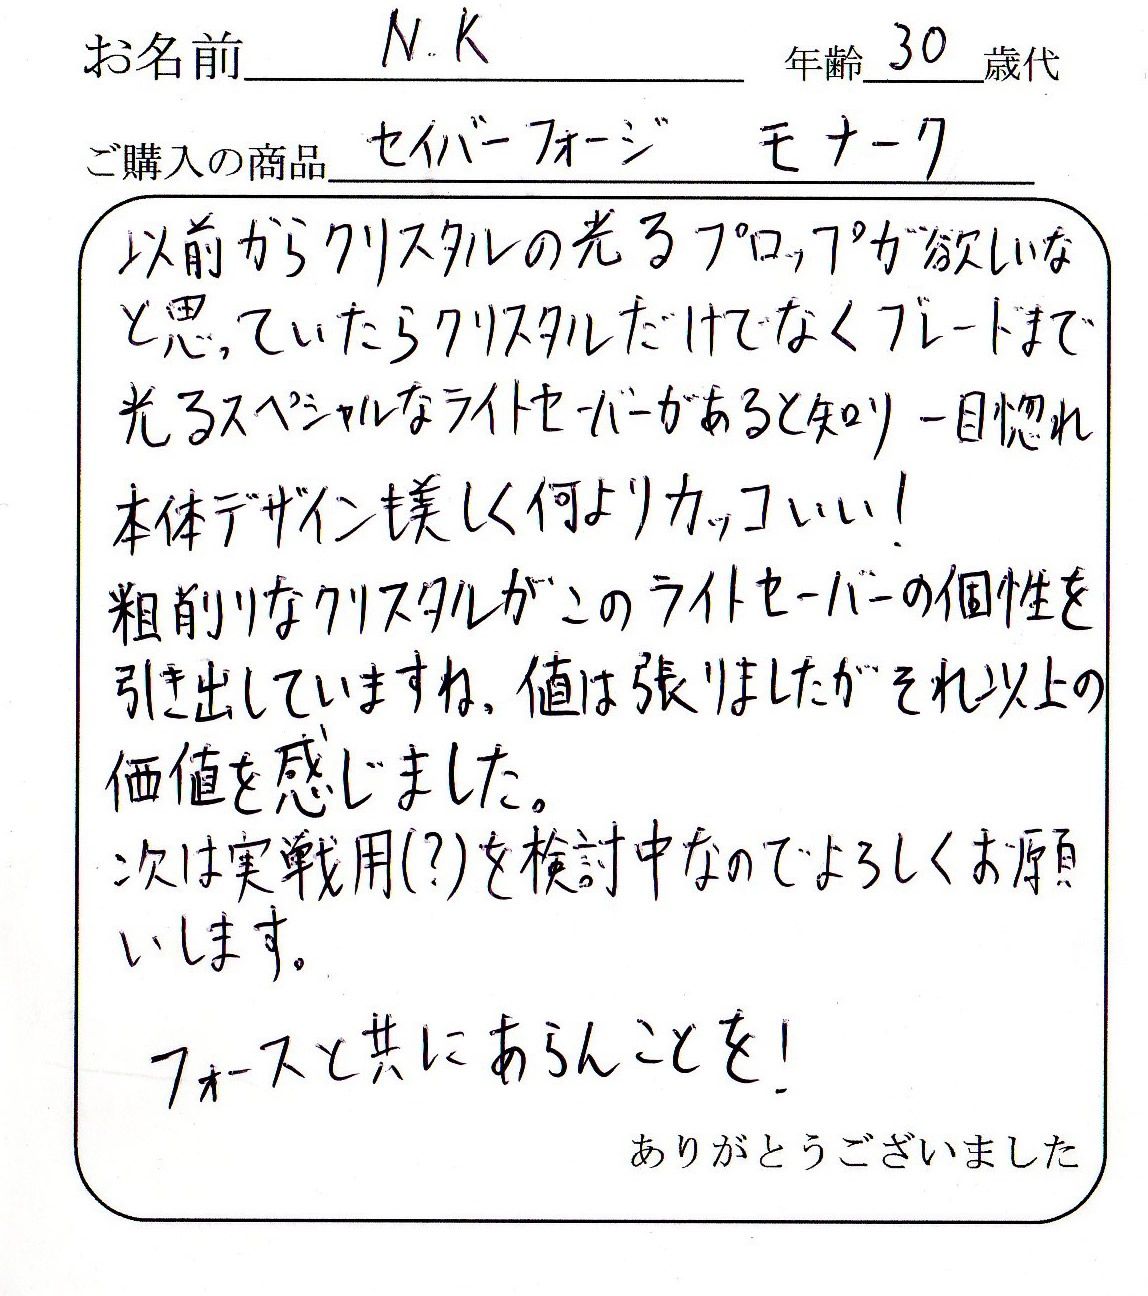 お名前 N.K 年齢 30 歳代
ご購入の商品 セイバーフォージ モナーク
以前からクリスタルの光るプロップが欲しいな
と思っていたらクリスタルだけでなくブレードまで
光るスペシャルなライトセーバーがあると知り一目惚れ
本体デザインも美しく何よりカッコいい!
粗削りなクリスタルがこのライトセーバーの個性を
引き出していますね、値は張りましたがそれ以上の
価値を感じました。
次は実戦用(?)を検討中なのでよろしくお願
いします。
フォースと共にあらんことを!
ありがとうございました